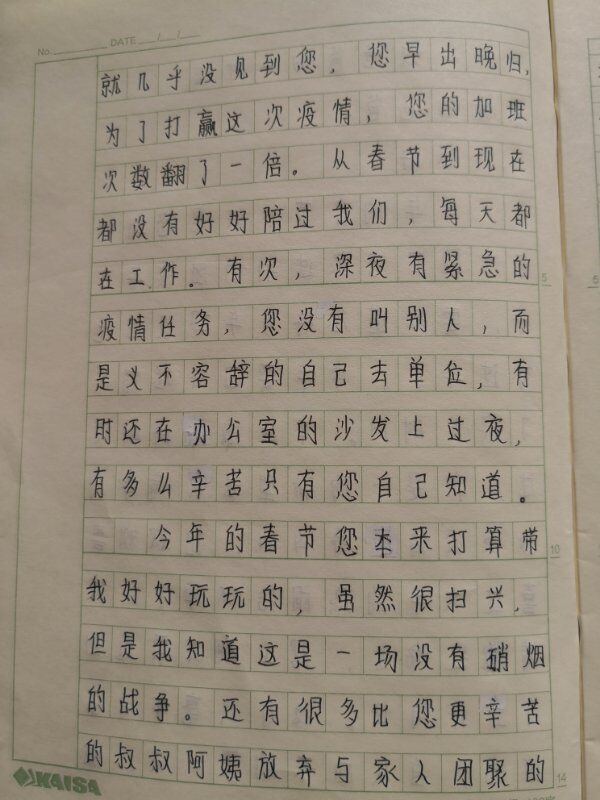 No. DATE / /
就几乎没见到您，您早出晚归，
为了打赢这次疫情，您的加班
次数翻了一倍。从春节到现在
都没有好好陪过我们，每天都
在工作。有次，深夜有紧急的
5
疫情任务，您没有叫别人，而
是义不容辞的自己去单位，有
时还在办公室的沙发上过夜，
有多么辛苦只有您自己知道。
今年的春节您本来打算带
10
我好好玩玩的，虽然很扫兴，
但是我知道这是一场没有硝烟
的战争。还有很多比您更辛苦
的叔叔阿姨放弃与家人团聚的
14
KAISA
5